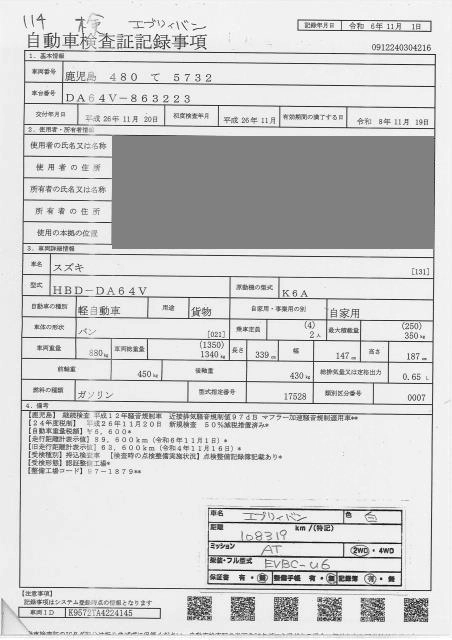 114 検 エブリィバン
記録年月日 令和 6年11月 1日
自動車検査証記録事項
0912240304216
1. 基本情報
車両番号 鹿児島 480 て 5732
車台番号 DA64V-863223
交付年月日 平成26年11月20日 初度検査年月 平成26年11月 有効期間の満了する日 令和 8年11月19日
2. 使用者・所有者情報
使用者の氏名又は名称
使用者の住所
所有者の氏名又は名称
所有者の住所
使用の本拠の位置
3. 車両詳細情報
車名 スズキ [131]
型式 HBD-DA64V 原動機の型式 K6A
自動車の種別 軽自動車 用途 貨物 自家用・事業用の別 自家用
車体の形状 バン [021] 乗車定員 (4) 2人 最大積載量 (250) 350kg
車両重量 880kg 車両総重量 (1350) 1340kg 長さ 339cm 幅 147cm 高さ 187cm
前軸重 450kg 後軸重 430kg 総排気量又は定格出力 0.65 L
燃料の種類 ガソリン 型式指定番号 17528 類別区分番号 0007
4. 備考
【鹿児島】 継続検査 平成12年騒音規制車 近接排気騒音規制値97dB マフラー加速騒音規制適用車**
【24年度税制】 平成26年11月20日 新規検査 50%減税措置済み*
【自動車重量税額】 ¥6,600*
【走行距離計表示値】 89,600km (令和6年11月1日)
【旧走行距離計表示値】 63,600km (令和4年11月16日)*
【受検種別】持込検査車 【検査時の点検整備実施状況】点検整備記録簿記載あり*
【受検形態】認証整備工場*
【整備工場コード】97-1879**
車名 エブリィバン 色 白
距離 108319 km/(特記)
ミッション AT 2WD・4WD
架装・フル型式 EVBC-U6
保証書 有・無 整備手帳 有・無 記録簿 有・無
【注意事項】
記録事項はシステム登録時点の情報となります
車両ID K95721A4224145